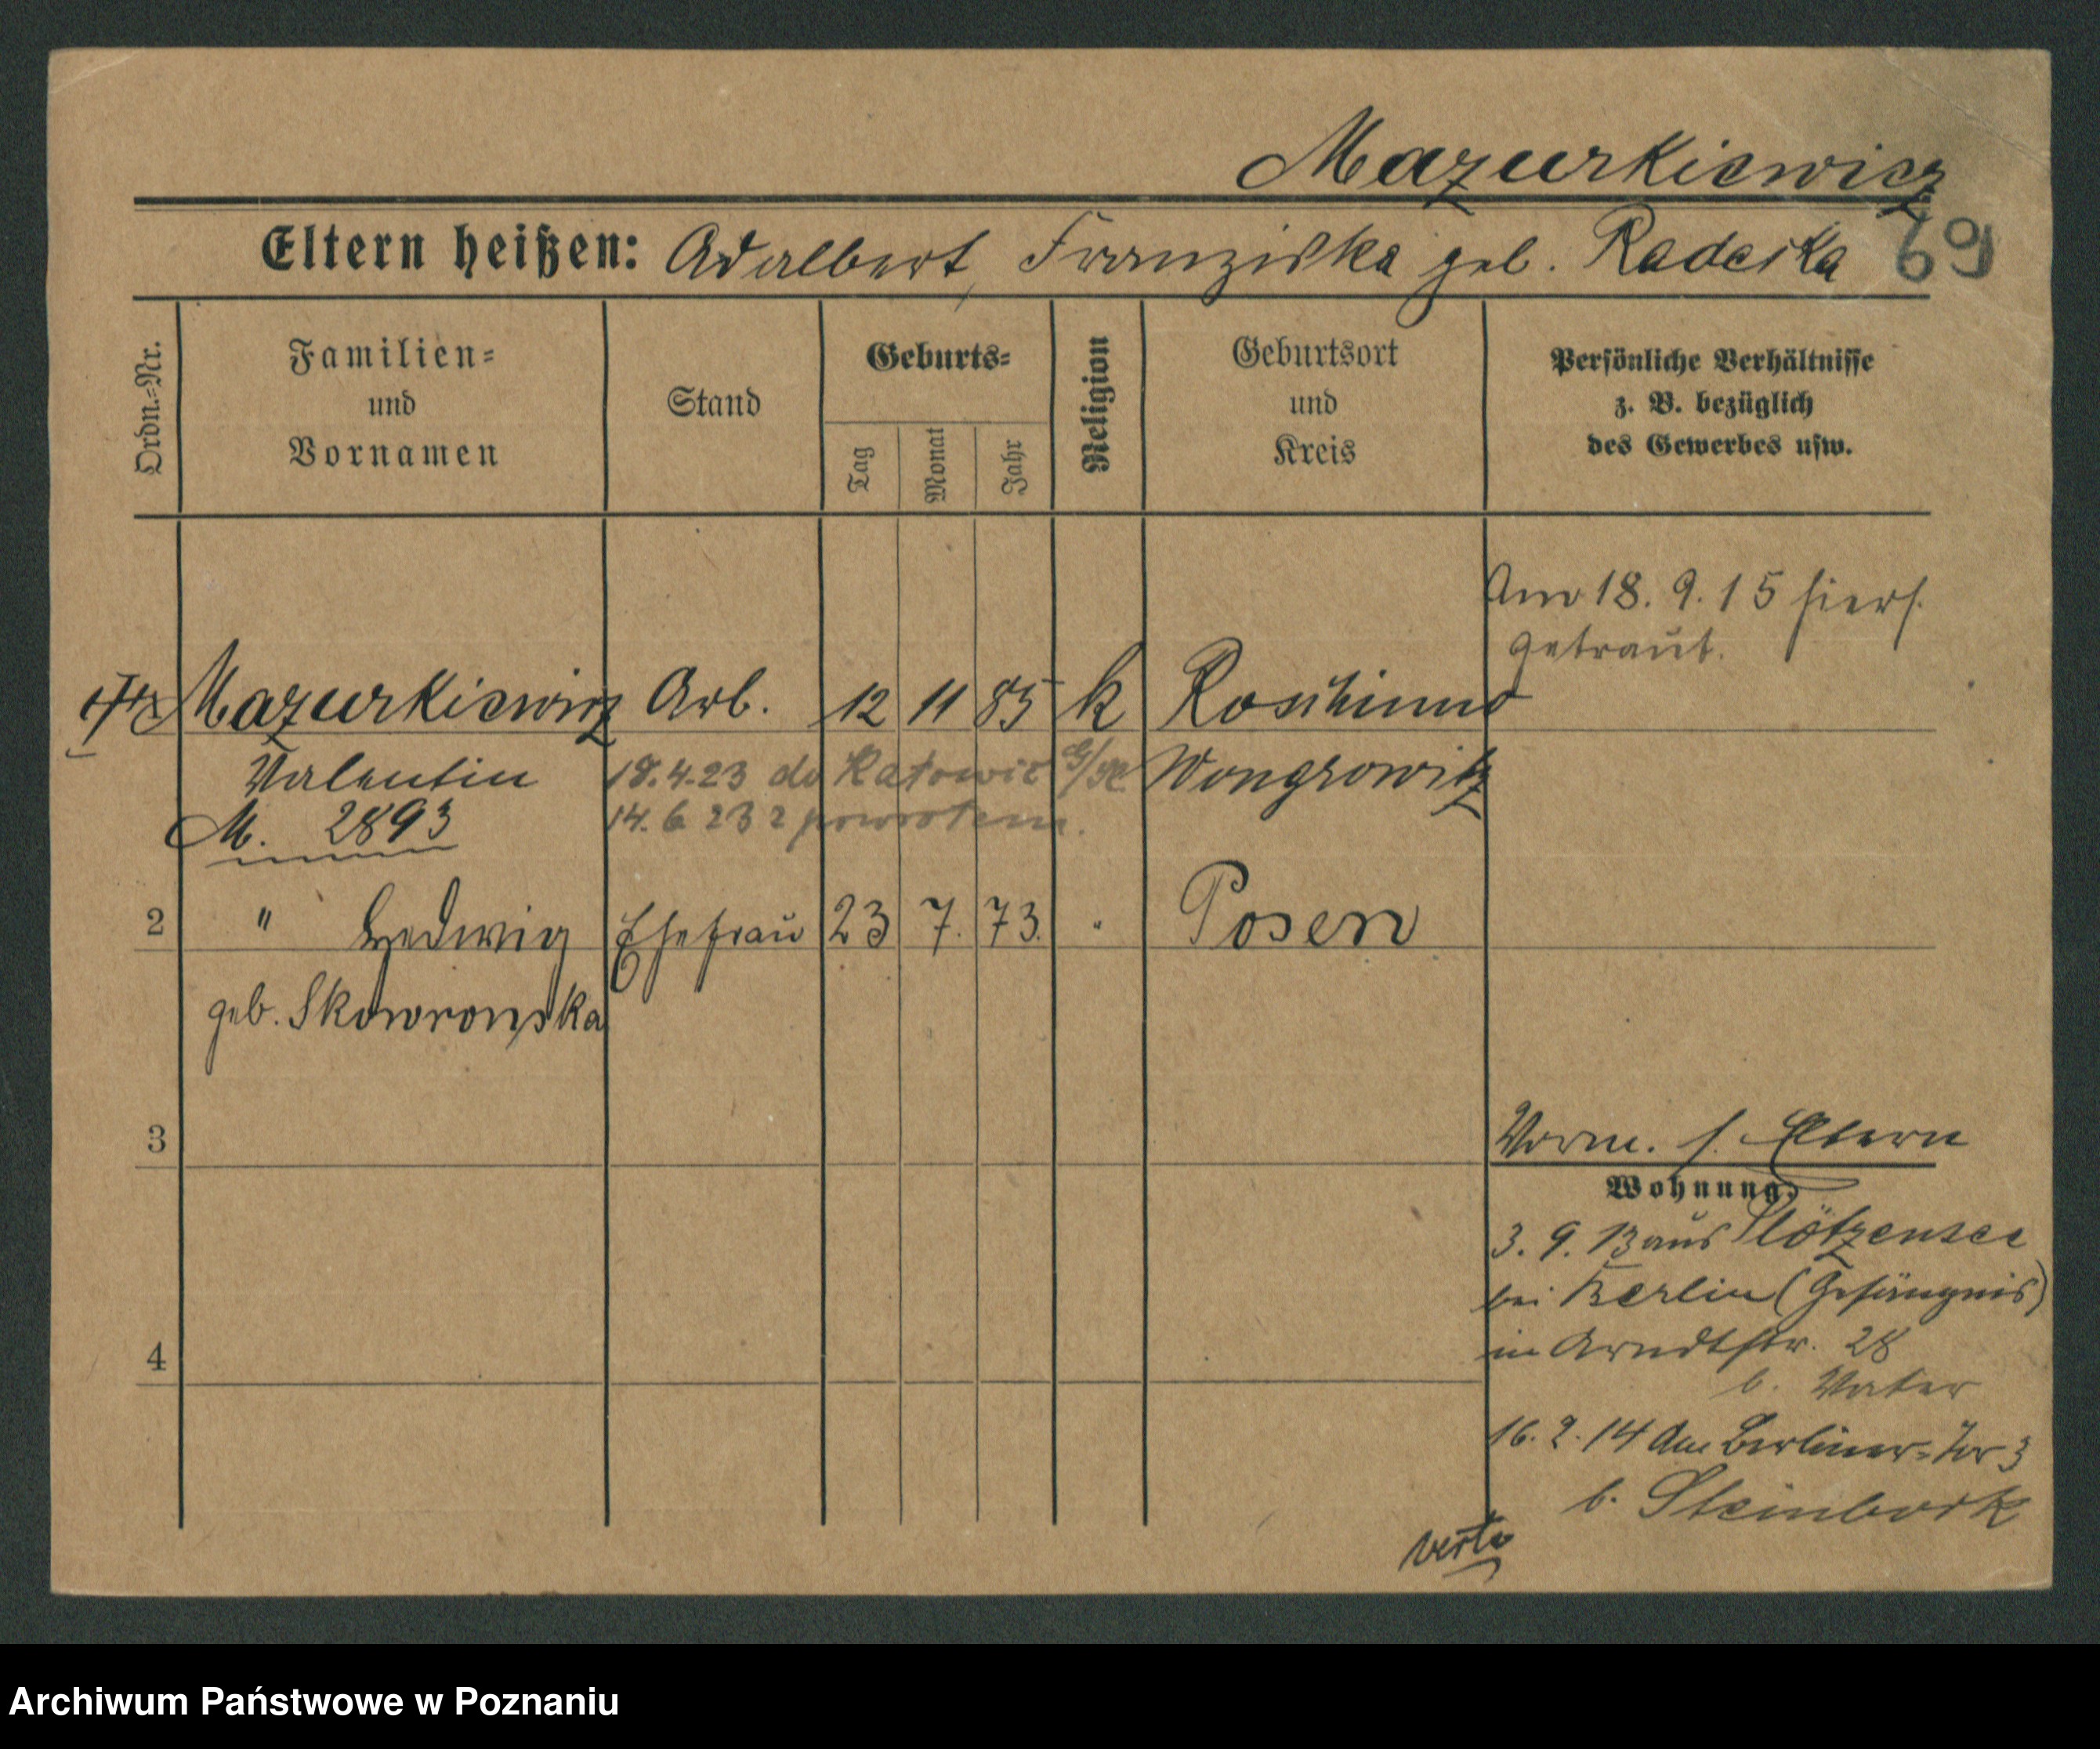 Mazurkiewicz
Eltern heißen: Adalbert, Franziska geb. Radeska
69
Ordn.=Nr.
Familien=
und
Vornamen
Stand
Geburts=
Tag
Monat
Jahr
Religion
Geburtsort
und
Kreis
Persönliche Verhältnisse
z. B. bezüglich
des Gewerbes usw.
Am 18. 9. 15 hiers.
getraut.
Mazurkiewicz Arb. 12 11 85 k Roschinno
Valentin 18.4.23 do Katowic Wongrowitz
M. 2893 14. 6 23 z powrotem.
2 " Hedwig Ehefrau 23 7. 73. " Posen
geb. Skowronska
3
Vorm. s. Eltern
Wohnung
3. 9. 13 aus Plötzensee
bei Berlin (Gefängnis)
in Arndtstr. 28
4
b. Vater
16. 2. 14 Am Berliner-Tor 3
b. Steinbork
verte
Archiwum Państwowe w Poznaniu